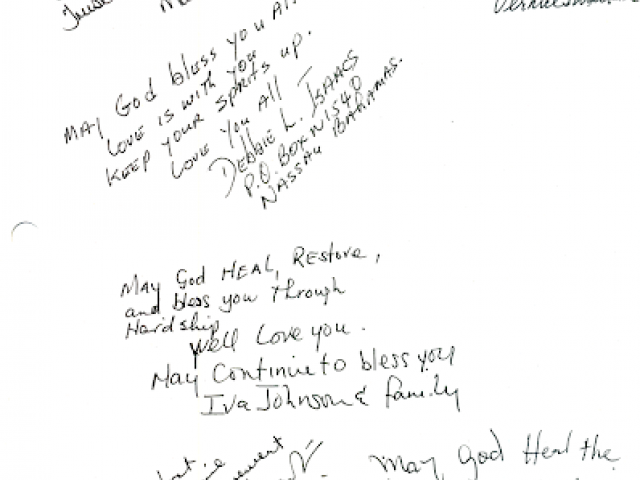 MAY God bless you All
Love is with you
KEEP YOUR Sprits up.
Love You All
DEbbIE L. ISAACS
P.O. BOX N1540
NASSAU BAHAMAS.
May God HEAL, REStore,
and bless you through
Hardship
Well Love you.
May Continue to bless you
Iva Johnson & family
May God Heal the